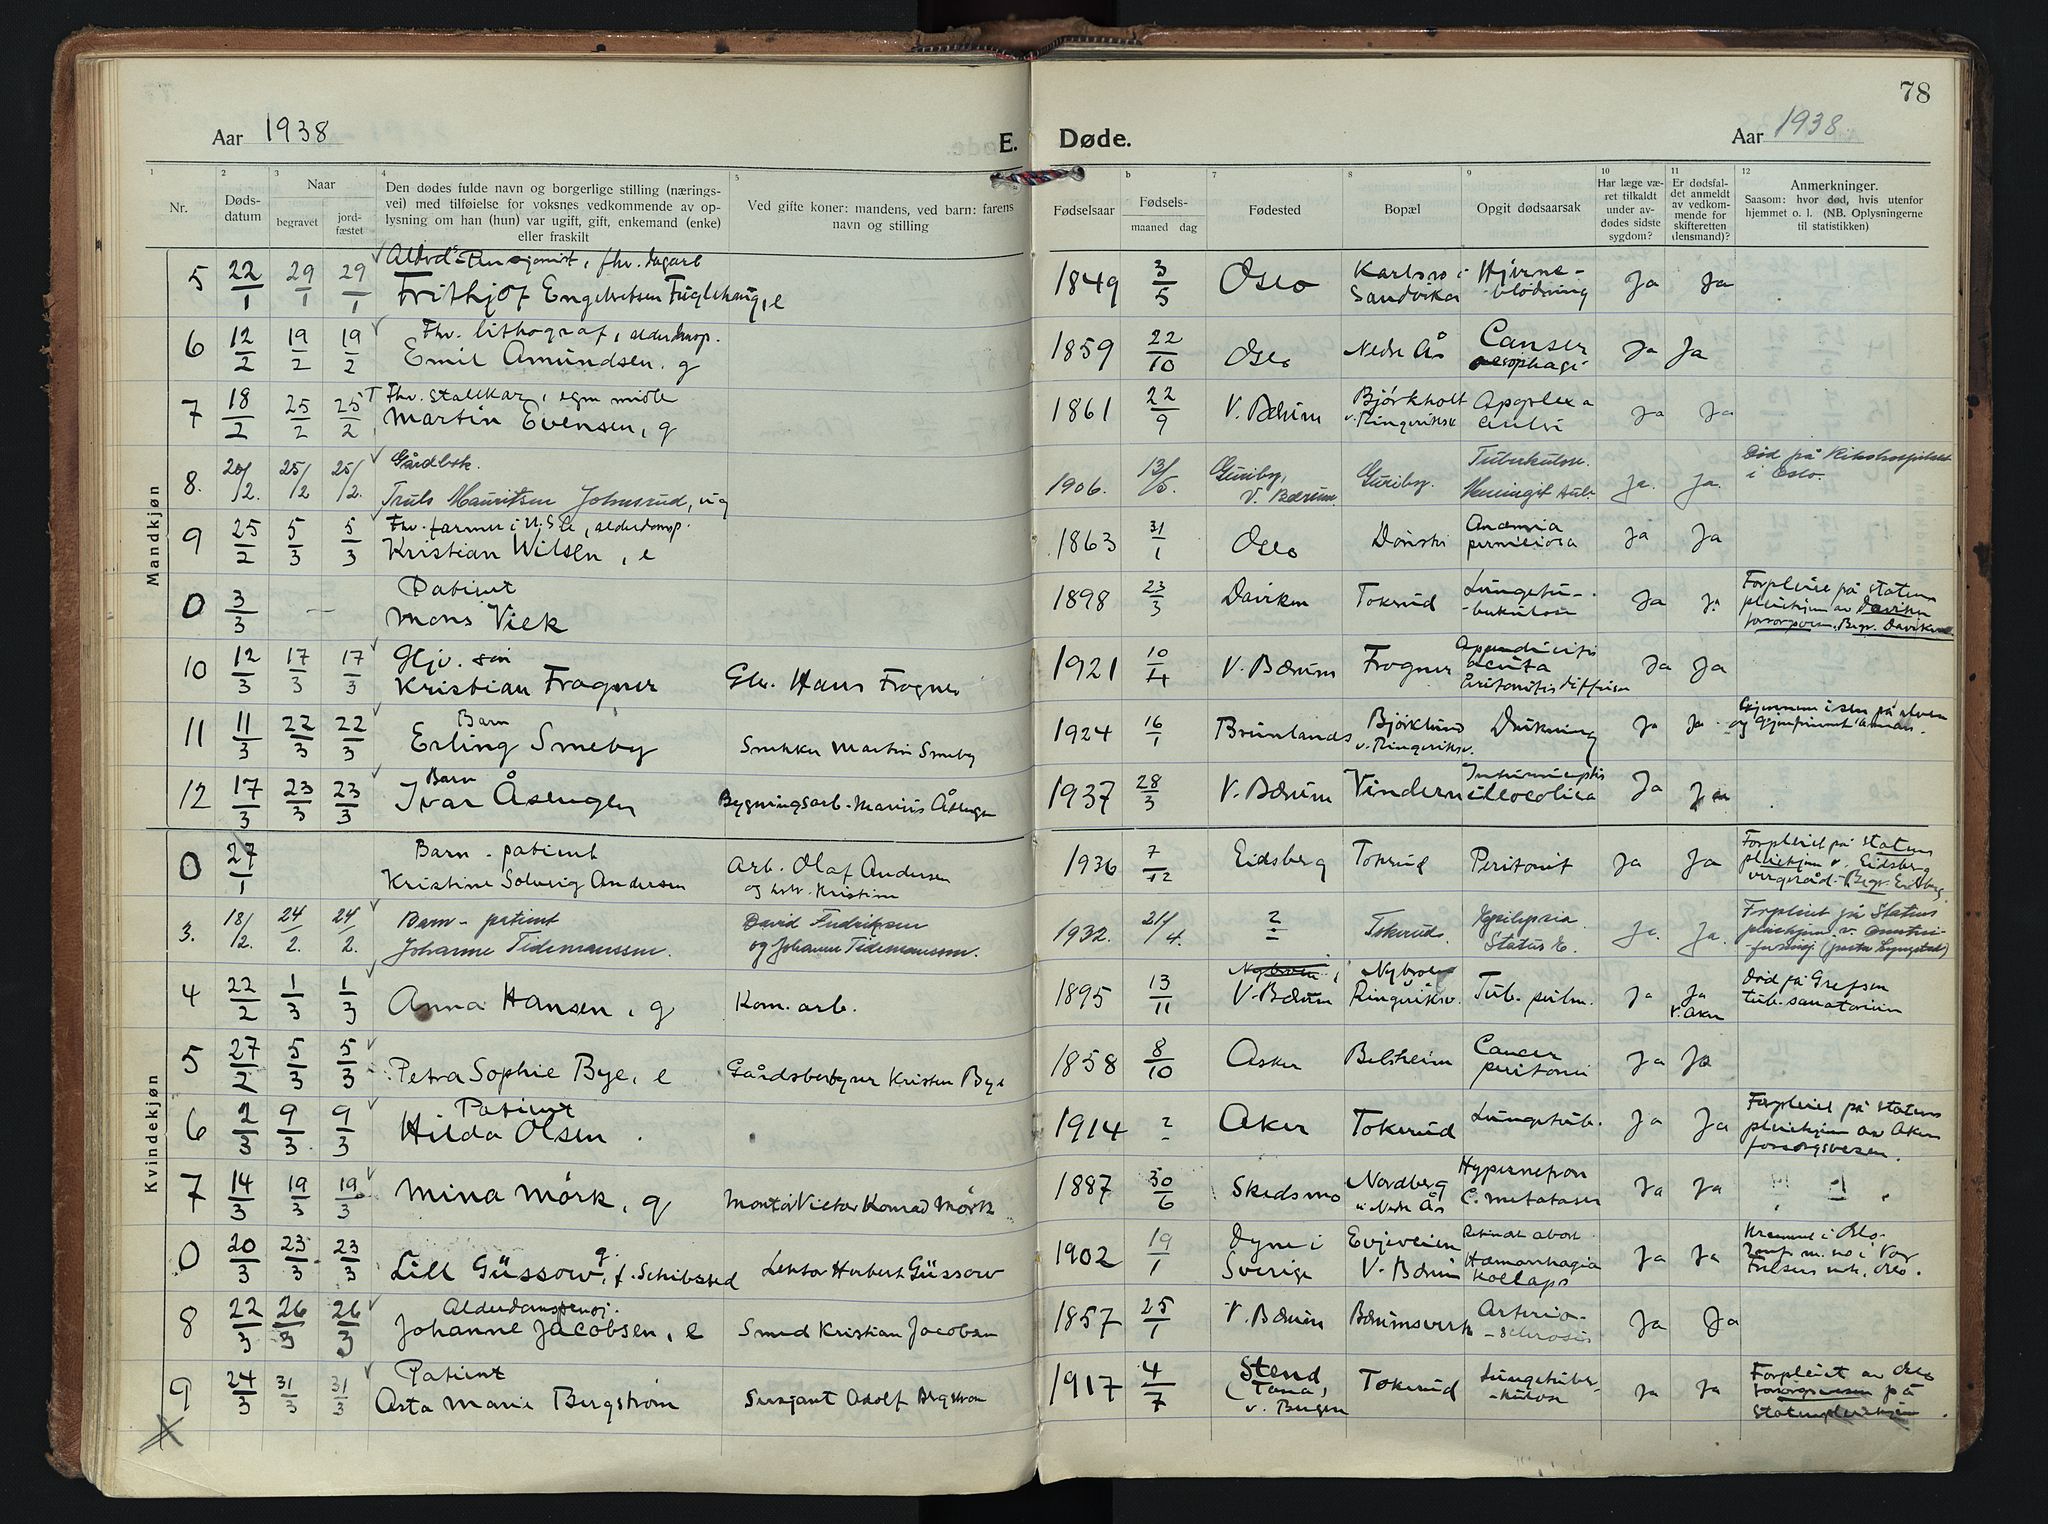 78
Aar 1938
E. Døde.
Aar 1938
1 2 3 4 5 6 7 8 9 10 11 12
Nr.
Døds-
datum
Naar
begravet
jord-
fæstet
Den dødes fulde navn og borgerlige stilling (nærings-
vei) med tilføielse for voksnes vedkommende av op-
lysning om han (hun) var ugift, gift, enkemand (enke)
eller fraskilt
Ved gifte koner: mandens, ved barn: farens
navn og stilling
Fødselsaar
Fødsels-
maaned dag
Fødested
Bopæl
Opgit dødsaarsak
Har læge væ-
ret tilkaldt
under av-
dødes sidste
sygdom?
Er dødsfal-
det anmeldt
av vedkom-
mende for
skifteretten
(lensmand)?
Anmerkninger.
Saasom: hvor død, hvis utenfor
hjemmet o. l. (NB. Oplysningerne
til statistikken)
Mandkjøn
fhv. dagarb
5 22/1 29/1 29/1 Frithjof Engelretsen Fuglehaug, e 1849 3/5 Oslo Karlsro i Sandvika Hjerne-blødning Ja Ja
Fhv. lithograf,
6 12/2 19/2 19/2 Emil Amundsen, g 1859 22/10 Oslo Nedre Ås Cancer oesophagi Ja Ja
Fhv. stallkar, egne midle
7 18/2 25/2 25/2 Martin Evensen, g 1861 22/9 V. Bærum Bjørkholt v. Ringeriksv Apoplexa Ja Ja
Gårdbek.
8. 20/2. 25/2 25/2. Truls Mauritsen Johnsrud, ug 1906. 13/5. Guriby, V. Bærum. Guriby. Tuberkulose. Meningit Ja. Ja. Død på Rikshospitalet i Oslo.
Fhv. farmer i U.S.A, alderdomsp.
9 25/2 5/3 5/3 Kristian Wilsen, e 1863 31/1 Oslo Dønski Anæmia perniciosa Ja Ja
Patient
0 3/3 - Mons Viek 1898 23/3 Daviken Tokerud Lungetu-berkulose Ja Ja Forpleiet på statens pleiehjem av Daviken forsorgsvesen, Begr. Daviken.
Gbr. søn
10 12/3 17/3 17/3 Kristian Frogner Gbr. Hans Frogner 1921 10/4 V. Bærum Frogner Appendicitis acuta Peritonitis diffusa Ja Ja
Barn
11 11/3 22/3 22/3 Erling Smeby Snekker Martin Smeby 1924 16/1 Brunlands Bjørklund v. Ringeriksv. Drukning Ja Ja Gjennem isen på elven og
Barn
12 17/3 23/3 23/3 Ivar Åsengen Bygningsarb. Marius Åsengen 1937 28/3 V. Bærum Vindern illocolica Ja Ja
Kvindekjøn
Barn - patient
0 27/1 Kristine Solveig Andersen Arb. Olaf Andersen og hstr. Kristine 1936 7/12 Eidsberg Tokerud Peritonit Ja Ja Forpleiet på statens pleiehjem v. Eidsberg vergeråd - Begr. Eidsberg.
Barn - patient
3. 18/2. 24/2. 24/2. Johanne Tidemanssen. David Fredriksen og Johanne Tidemanssen. 1932. 21/4. ? Tokerud. Epilepsia Status E. Ja. Ja. Forpleiet på Statens pleiehjem v.
4 22/2 1/3 1/3 Anna Hansen, g Kom. arb. 1895 13/11 V. Bærum Nybroen Ringeriksv. Tub. pulm. Ja Ja v. Aker Død på Grefsen tub. sanatorium
5 27/2 5/3 5/3 Petra Sophie Bye, e Gårdsbestyrer Kristen Bye 1858 8/10 Asker Belsheim Cancer peritonei Ja Ja
Patient
6 2/3 9/3 9/3 Hilda Olsen. 1914 ? Aker Tokerud Lungetub. Ja Ja Forpleiet på statens pleiehjem av Aker forsorgsvesen.
7 14/3 19/3 19/3 Mina Mörk, g Montør Victor Konrad Mörk 1887 30/6 Skedsmo Nordberg v. Nedre Ås Hypernefron C. metataser Ja Ja
0 20/3 23/3 23/3 Lill Güssow, g. f. Schibsted Lektor Herbert Güssow 1902 19/1 Dyne i Sverige Evjeveien V. Bærum abort Hæmorrhagia Kollaps Ja Ja Kremeret i Oslo
Alderdomspensj.
8 22/3 26/3 26/3 Johanne Jacobsen, e Smed Kristian Jacobsen 1857 25/1 V. Bærum Bærumsverk Arterio-sclerosis Ja Ja
Patient
9 24/3 31/3 31/3 Asta Marie Bergstrøm Sersjant Adolf Bergstrøm 1917 4/7 Stend (Fana) v. Bergen Tokerud Lungetuber-kulose Ja Ja Forpleiet av Oslo forsorgsvesen på Statens pleiehjem